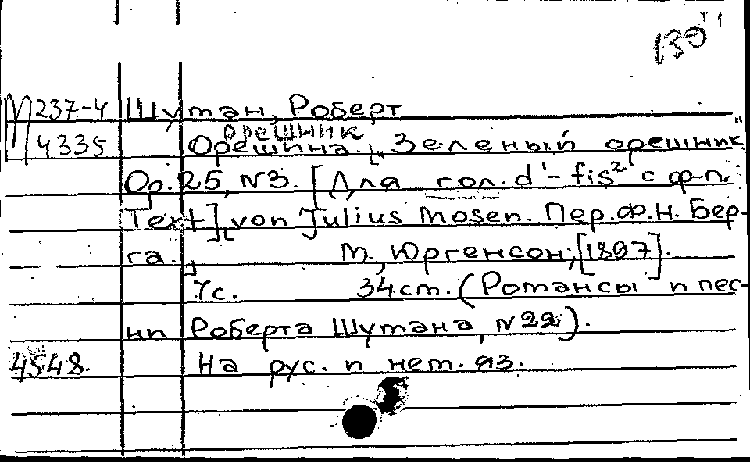 130
М 237-4 Шуман, Роберт
4335 орешник
Орешина „Зеленый орешник"
Op. 25, №3. [Для гол. d¹-fis² с ф-п.
Text], von Julius Mosen. Пер. Ф.Н. Бер-
га. М., Юргенсон, [1897].
7с. 34 см. (Романсы и пес-
ни Роберта Шумана, №22).
4548. На рус. и нем. яз.